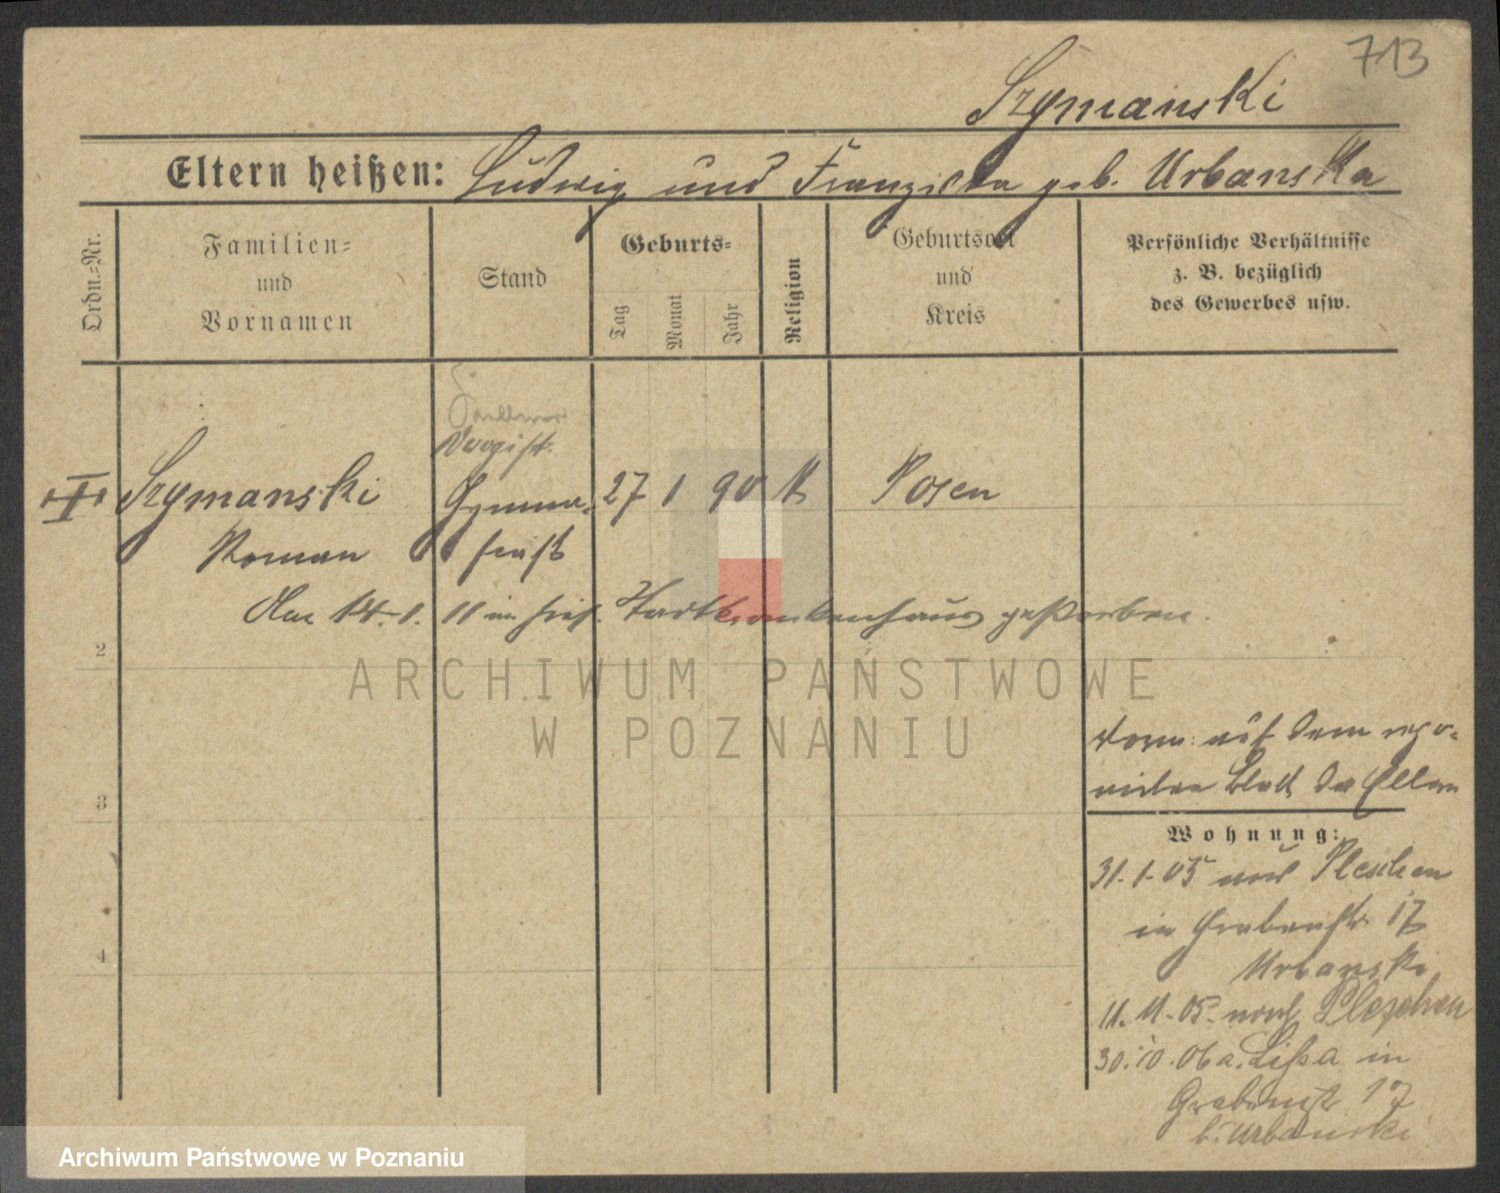 713
Szymanski
Eltern heißen: Ludwig und Franziska geb. Urbanska
Ordn.=Nr.
Familien=
und
Vornamen
Stand
Geburts=
Tag
Monat
Jahr
Religion
Geburtsort
und
Kreis
Persönliche Verhältnisse
z. B. bezüglich
des Gewerbes usw.
Szymanski
Roman
Gymna-
siast
27 1 90 k
Posen
Am 14. 1. 11 im hies. Stadtkrankenhaus gestorben.
2
3
4
auf dem
Blatt der Eltern
Wohnung:
31. 1. 05 nach Pleschen
in Grabenstr. 17
Urbanski
11. 11. 05. nach Pleschen
30. 10. 06 a. Lissa in
Grabenstr 17
b. Urbanski
ARCHIWUM PAŃSTWOWE
W POZNANIU
Archiwum Państwowe w Poznaniu